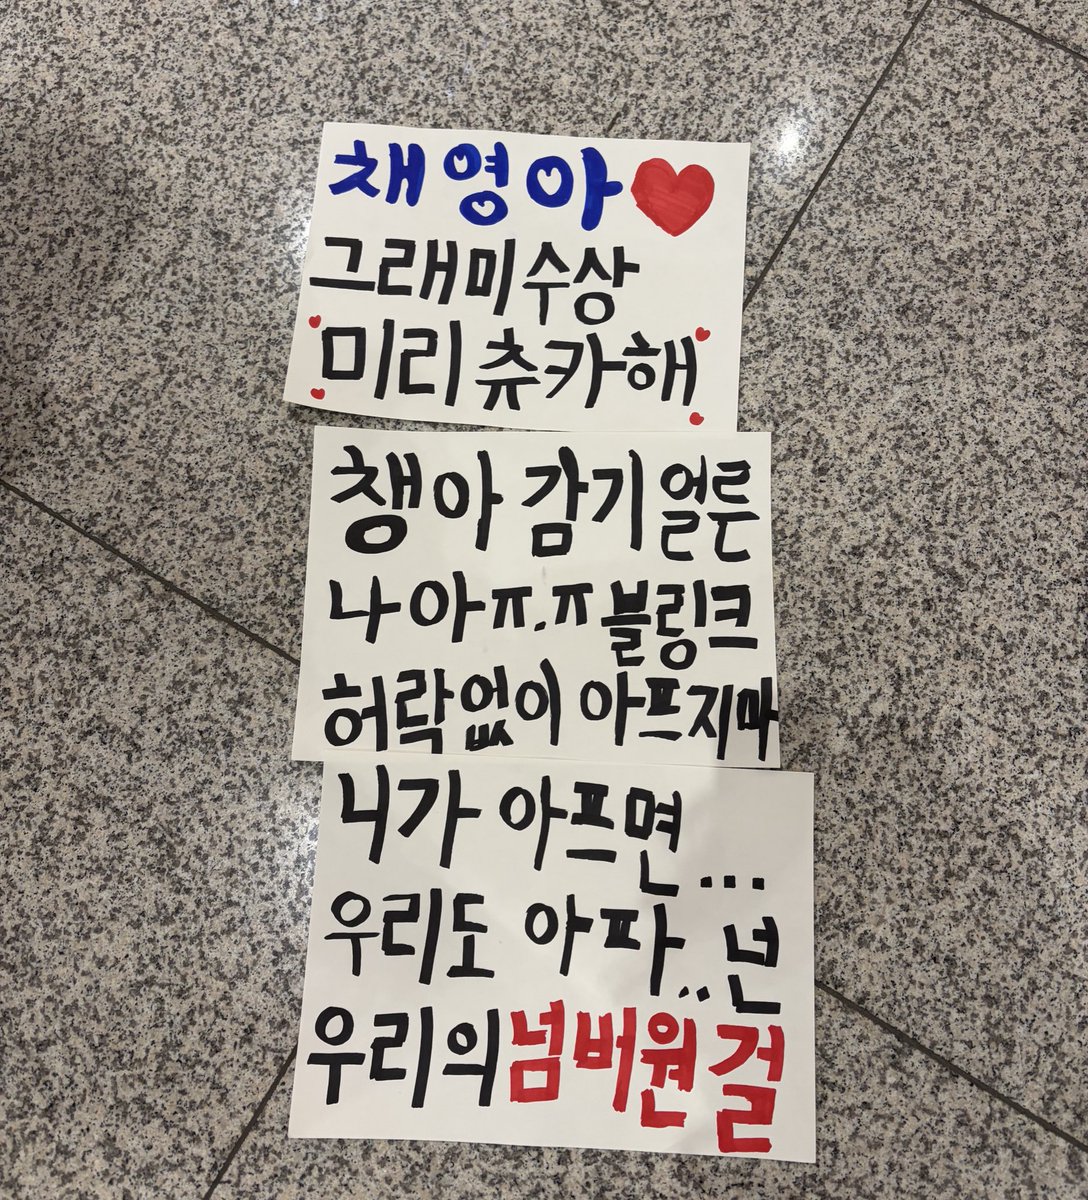 채영아
그래미수상
미리 츄카해
챙아 감기 얼른
나아ㅠ.ㅠ 블링크
허락없이 아프지마
니가 아프면...
우리도 아파.. 넌
우리의 넘버원 걸